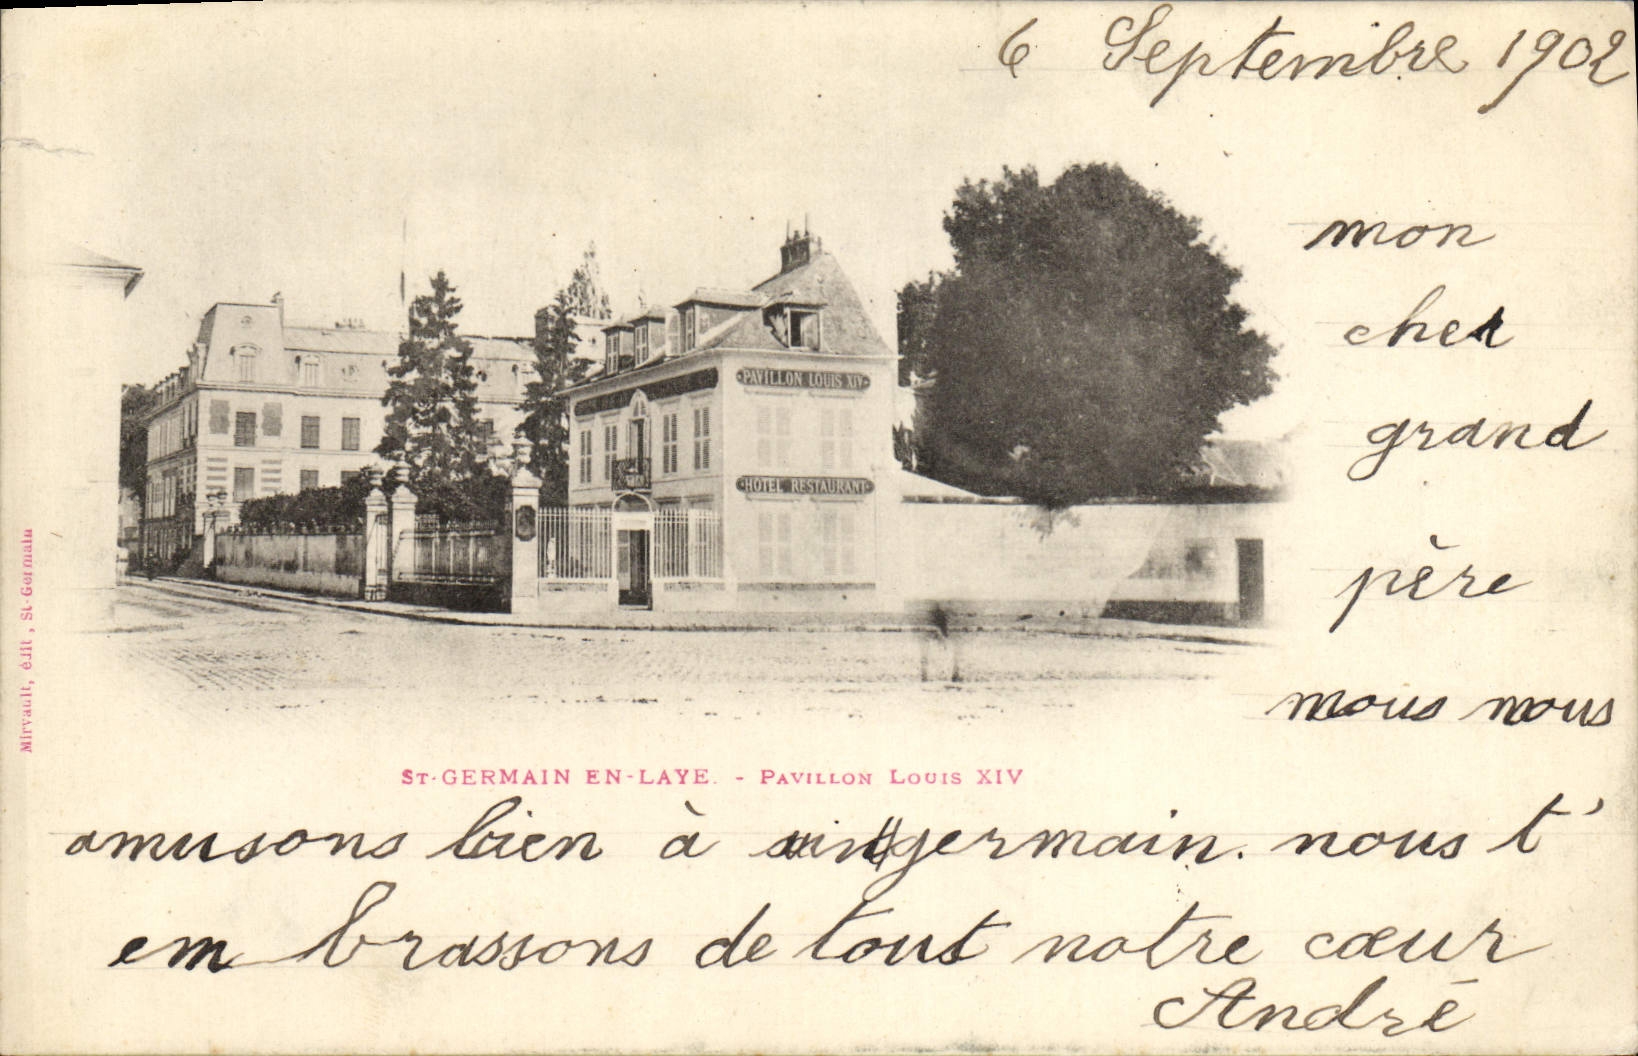 6 Septembre 1902
mon
cher
grand
père
nous nous
PAVILLON LOUIS XIV
HOTEL RESTAURANT
Mirvault, édit, St-Germain
ST-GERMAIN EN-LAYE. - PAVILLON LOUIS XIV
amusons bien à germain. nous t'
em brassons de tout notre cœur
André